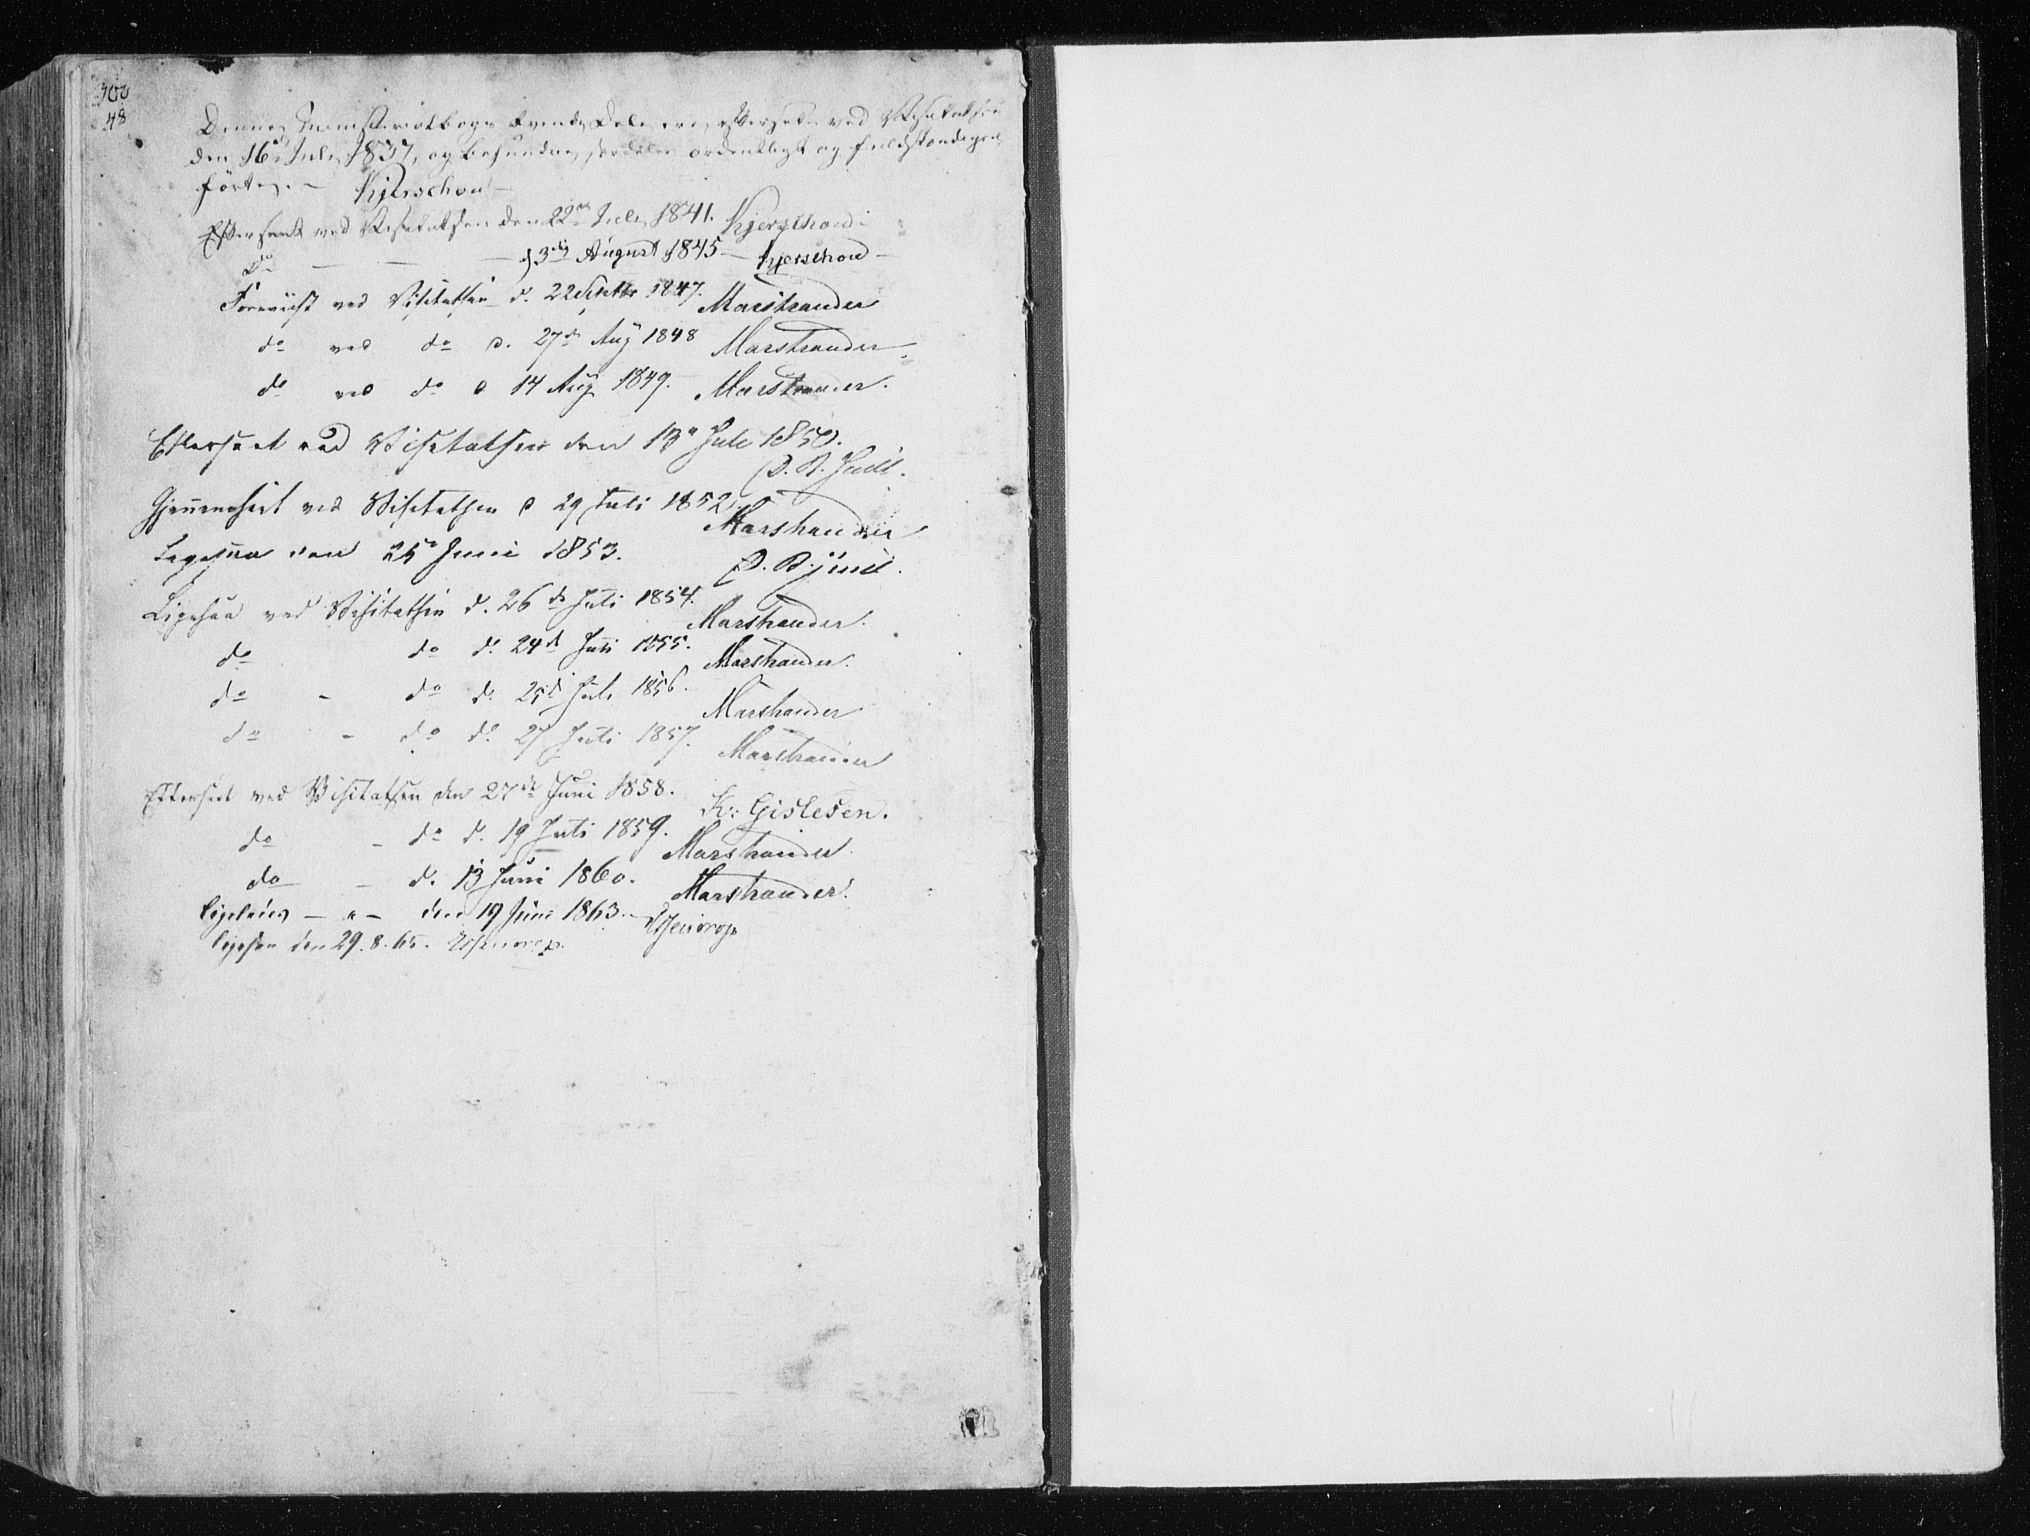 302
48
Denne Ministerialbogs tvende Dele ere eftersete ved Visitatsen
den 16de Juli 1837, og befundne særdeles ordentligt og fuldstændigen
førte. – Kjerschou –
Efterseet ved Visitatsen den 22de Juli 1841. Kjerschou –
Do – – – d 3die August 1845 – Kjerschou –
Foreviist ved Visitatsen d. 22 Septbr 1847. Marstrander
do ved do d. 27de Aug 1848 Marstrander.
do ved do d 14 Aug 1849. Marstrander.
Efterseet ved Visitatsen den 13de Juli 1850.
O. B. Juul.
Gjennemseet ved Visitatsen d 29 Juli 1852. Marstrander
Ligesaa den 25de Juni 1853. O. B. Juul.
Ligesaa ved Visitatsen d. 26de Juli 1854. Marstrander.
do do d. 24de Juli 1855. Marstrander.
do – do d. 25de Juli 1856. Marstrander
do – do d. 27 Juli 1857. Marstrander
Efterseet ved Visitatsen den 27de Juni 1858. K: Gislesen.
do – do d. 19 Juli 1859. Marstrander.
do – d. 13 Juni 1860. Marstrander.
ligeledes – " – den 19 Juni 1863. – Essendrop
ligesaa den 29.8.65. Essendrop.